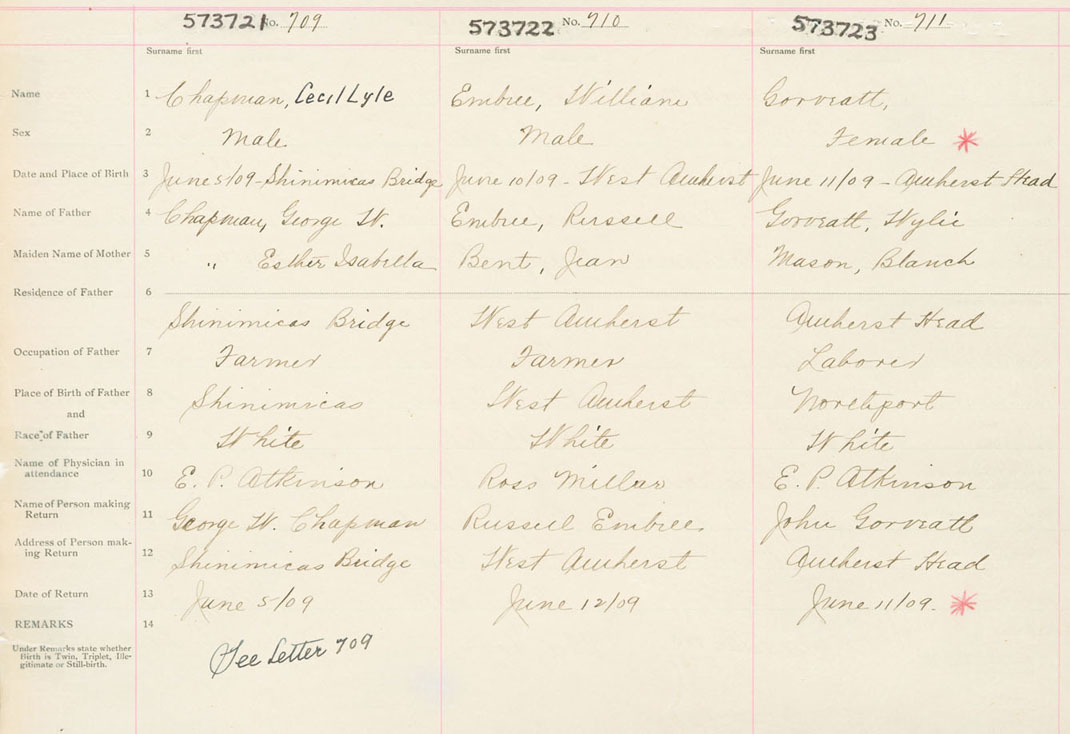 573721 No. 709 573722 No. 710 573723 No. 711
Surname first Surname first Surname first
Name 1 Chapman, Cecil Lyle Embree, William Gorveatt,
Sex 2 Male Male Female *
Date and Place of Birth 3 June 5/09 - Shinimicas Bridge June 10/09 - West Amherst June 11/09 - Amherst Head
Name of Father 4 Chapman, George W. Embree, Russell Gorveatt, Wylie
Maiden Name of Mother 5 " Esther Isabella Bent, Jean Mason, Blanch
Residence of Father 6
Shinimicas Bridge West Amherst Amherst Head
Occupation of Father 7 Farmer Farmer Laborer
Place of Birth of Father 8 Shinimicas West Amherst Northport
and
Race of Father 9 White White White
Name of Physician in
attendance 10 E. P. Atkinson Ross Millar E. P. Atkinson
Name of Person making
Return 11 George W. Chapman Russell Embree. John Gorveatt
Address of Person mak-
ing Return 12 Shinimicas Bridge West Amherst Amherst Head
Date of Return 13 June 5/09 June 12/09 June 11/09. *
REMARKS 14
Under Remarks state whether
Birth is Twin, Triplet, Ille-
gitimate or Still-birth.
See Letter 709